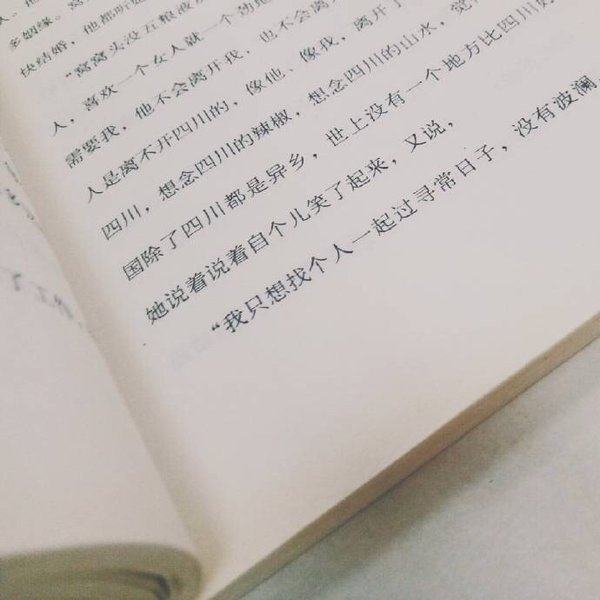 多姻缘。他
快结婚，他都
“窝窝头没五粮液
人，喜欢一个女人就一个劲地
需要我，他不会离开我，也不会离
人是离不开四川的，像他、像我，离开了
四川，想念四川的辣椒，想念四川的山水，觉
国除了四川都是异乡，世上没有一个地方比四川更
她说着说着自个儿笑了起来，又说，
“我只想找个人一起过寻常日子，没有波澜，